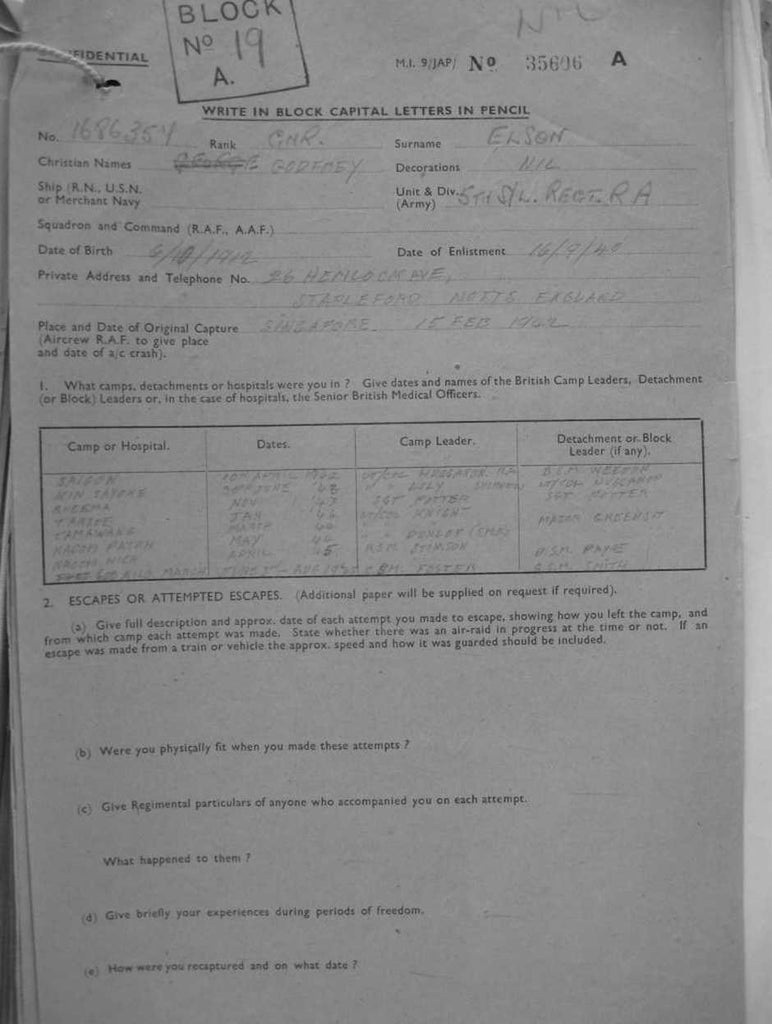 BLOCK
Nº 19
A.
NIL
FIDENTIAL
M.I. 9/JAP/ Nº 35606 A
WRITE IN BLOCK CAPITAL LETTERS IN PENCIL
No. 1686354 Rank GNR. Surname ELSON
Christian Names GEORGE GODFREY Decorations NIL
Ship (R.N., U.S.N. or Merchant Navy
Unit & Div. (Army) 5TH S/L. REGT. R A
Squadron and Command (R.A.F., A.A.F.)
Date of Birth /1912 Date of Enlistment 16/9/40
Private Address and Telephone No. 26 HEMLOCK AVE,
STAPLEFORD NOTTS ENGLAND
Place and Date of Original Capture SINGAPORE 15 FEB 1942
(Aircrew R.A.F. to give place
and date of a/c crash).
1. What camps, detachments or hospitals were you in ? Give dates and names of the British Camp Leaders, Detachment
(or Block) Leaders or, in the case of hospitals, the Senior British Medical Officers.
Camp or Hospital. Dates. Camp Leader. Detachment or Block Leader (if any).
SAIGON APRIL 1942 LT/COL B.S.M.
KIN SAYOKE JUNE 43 " " LILY LT/COL
NOV 43 SGT POTTER SGT POTTER
TARSOE JAN 44 LT/COL KNIGHT MAJOR
TAMAWANG MARCH 44 " " DUNLOP
MAY 44 R.S.M.
APRIL 45 B.S.M. PAYNE
MARCH AUG 1945 FOSTER SMITH
2. ESCAPES OR ATTEMPTED ESCAPES. (Additional paper will be supplied on request if required).
(a) Give full description and approx. date of each attempt you made to escape, showing how you left the camp, and
from which camp each attempt was made. State whether there was an air-raid in progress at the time or not. If an
escape was made from a train or vehicle the approx. speed and how it was guarded should be included.
(b) Were you physically fit when you made these attempts ?
(c) Give Regimental particulars of anyone who accompanied you on each attempt.
What happened to them ?
(d) Give briefly your experiences during periods of freedom.
(e) How were you recaptured and on what date ?